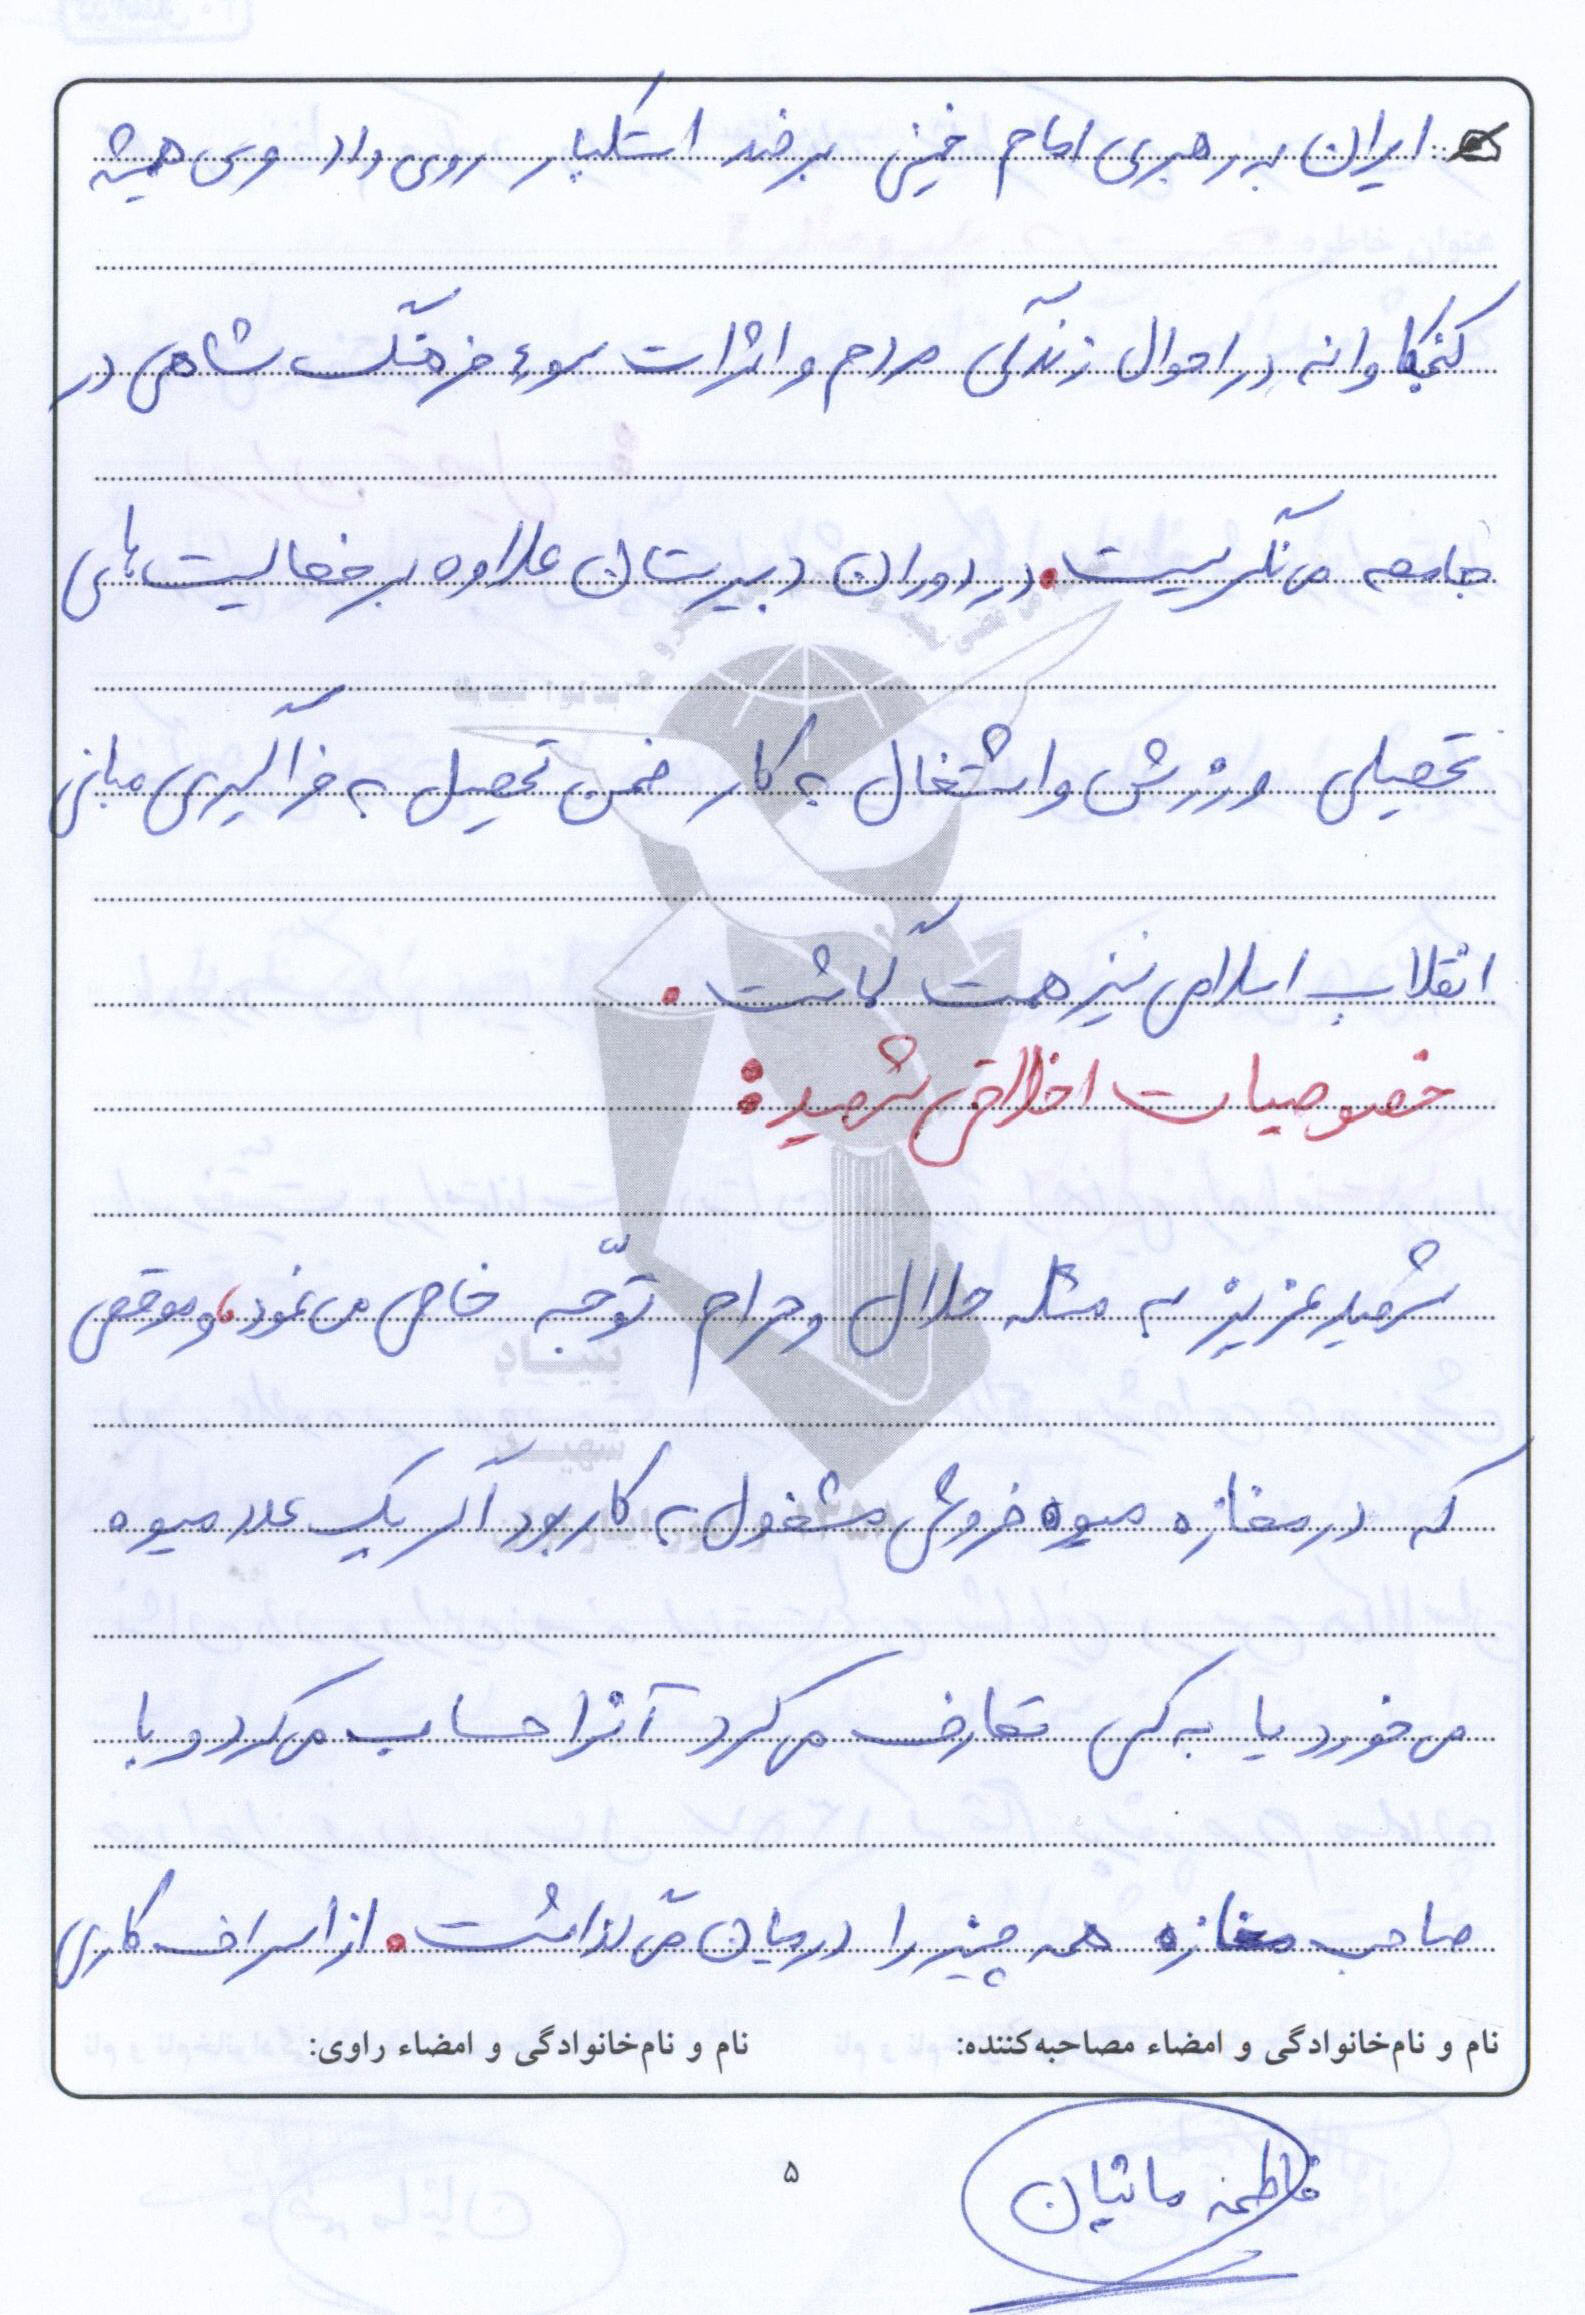 ایران به رهبری امام خمینی بر ضد استکبار روی داد وی همیشه
کنجکاوانه در احوال زندگی مردم و اثرات سوء فرهنگ شاهی در
جامعه می‌نگریست. در دوران دبیرستان علاوه بر فعالیت‌های
تحصیلی ورزش و اشتغال به کار ضمن تحصیل به فراگیری مبانی
انقلاب اسلامی نیز همّت گماشت.
خصوصیات اخلاقی شهید:
شهید عزیز به مسئله حلال و حرام توّجه خاصی می‌نمود، و موقعی
که در مغازه میوه فروشی مشغول به کار بود اگر یک عدد میوه
می‌خورد یا به کسی تعارف می‌کرد آنرا حساب می‌کرد و با
صاحب مغازه همه چیز را در میان می‌گذاشت. از اسراف کاری
نام و نام‌خانوادگی و امضاء مصاحبه‌کننده: نام و نام‌خانوادگی و امضاء راوی:
فاطمه مانیان
۵
بنیاد
شهید